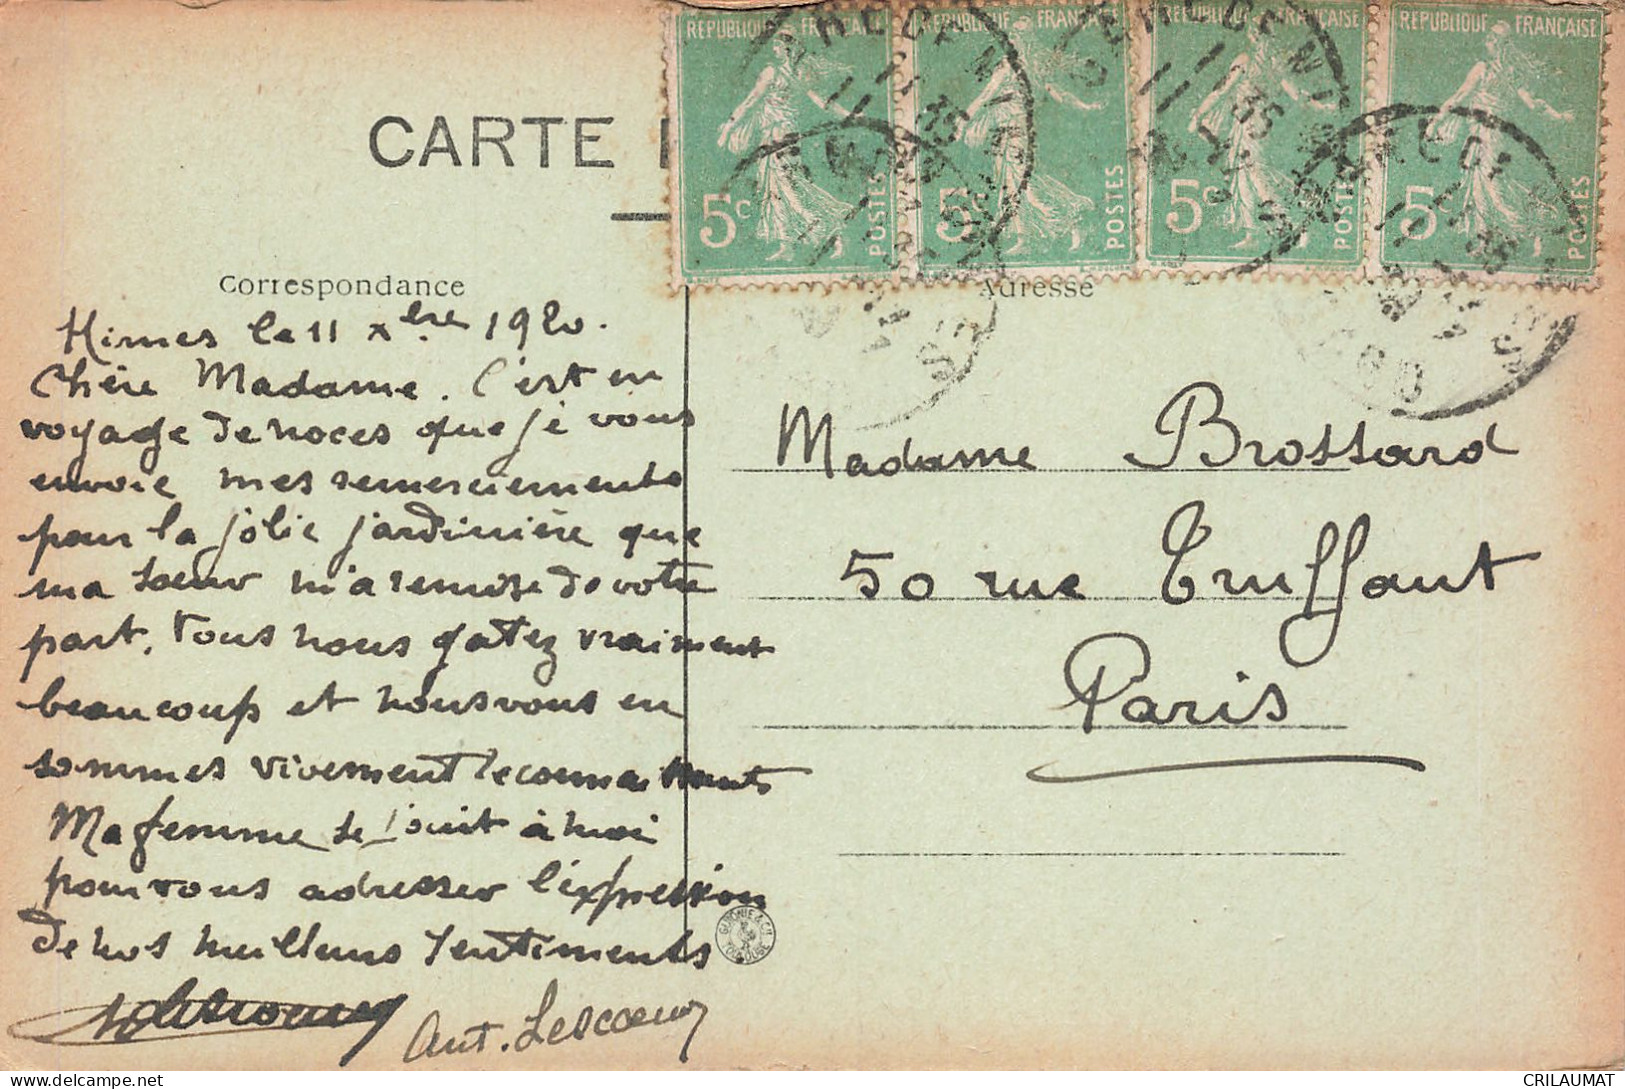 REPUBLIQUE FRANÇAISE REPUBLIQUE FRANÇAISE REPUBLIQUE FRANÇAISE REPUBLIQUE FRANÇAISE
5c POSTES 5c POSTES 5c POSTES 5c POSTES
CARTE
Correspondance
Adresse
Nimes le 11 xbre 1920.
Chère Madame. C'est en
voyage de noces que je vous
envoie mes remerciements
pour la jolie jardinière que
ma soeur m'a remise de votre
part. Tous nous gatez vraiment
beaucoup et nous vous en
sommes vivement reconnaissants
Ma femme se joint à moi
pour vous adresser l'expression
de nos meilleurs sentiments
Ant. Lescoeur
Madame Brossard
50 rue Truffaut
Paris
CRILAUMAT